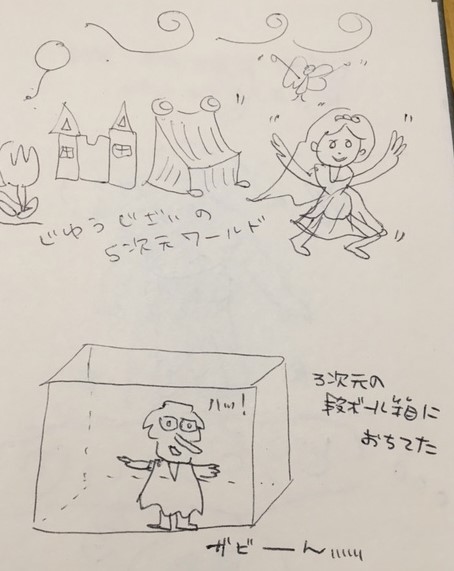 じゆうじざいの
5次元ワールド
ハッ!
3次元の
段ボール箱に
おちてた
ザビーん